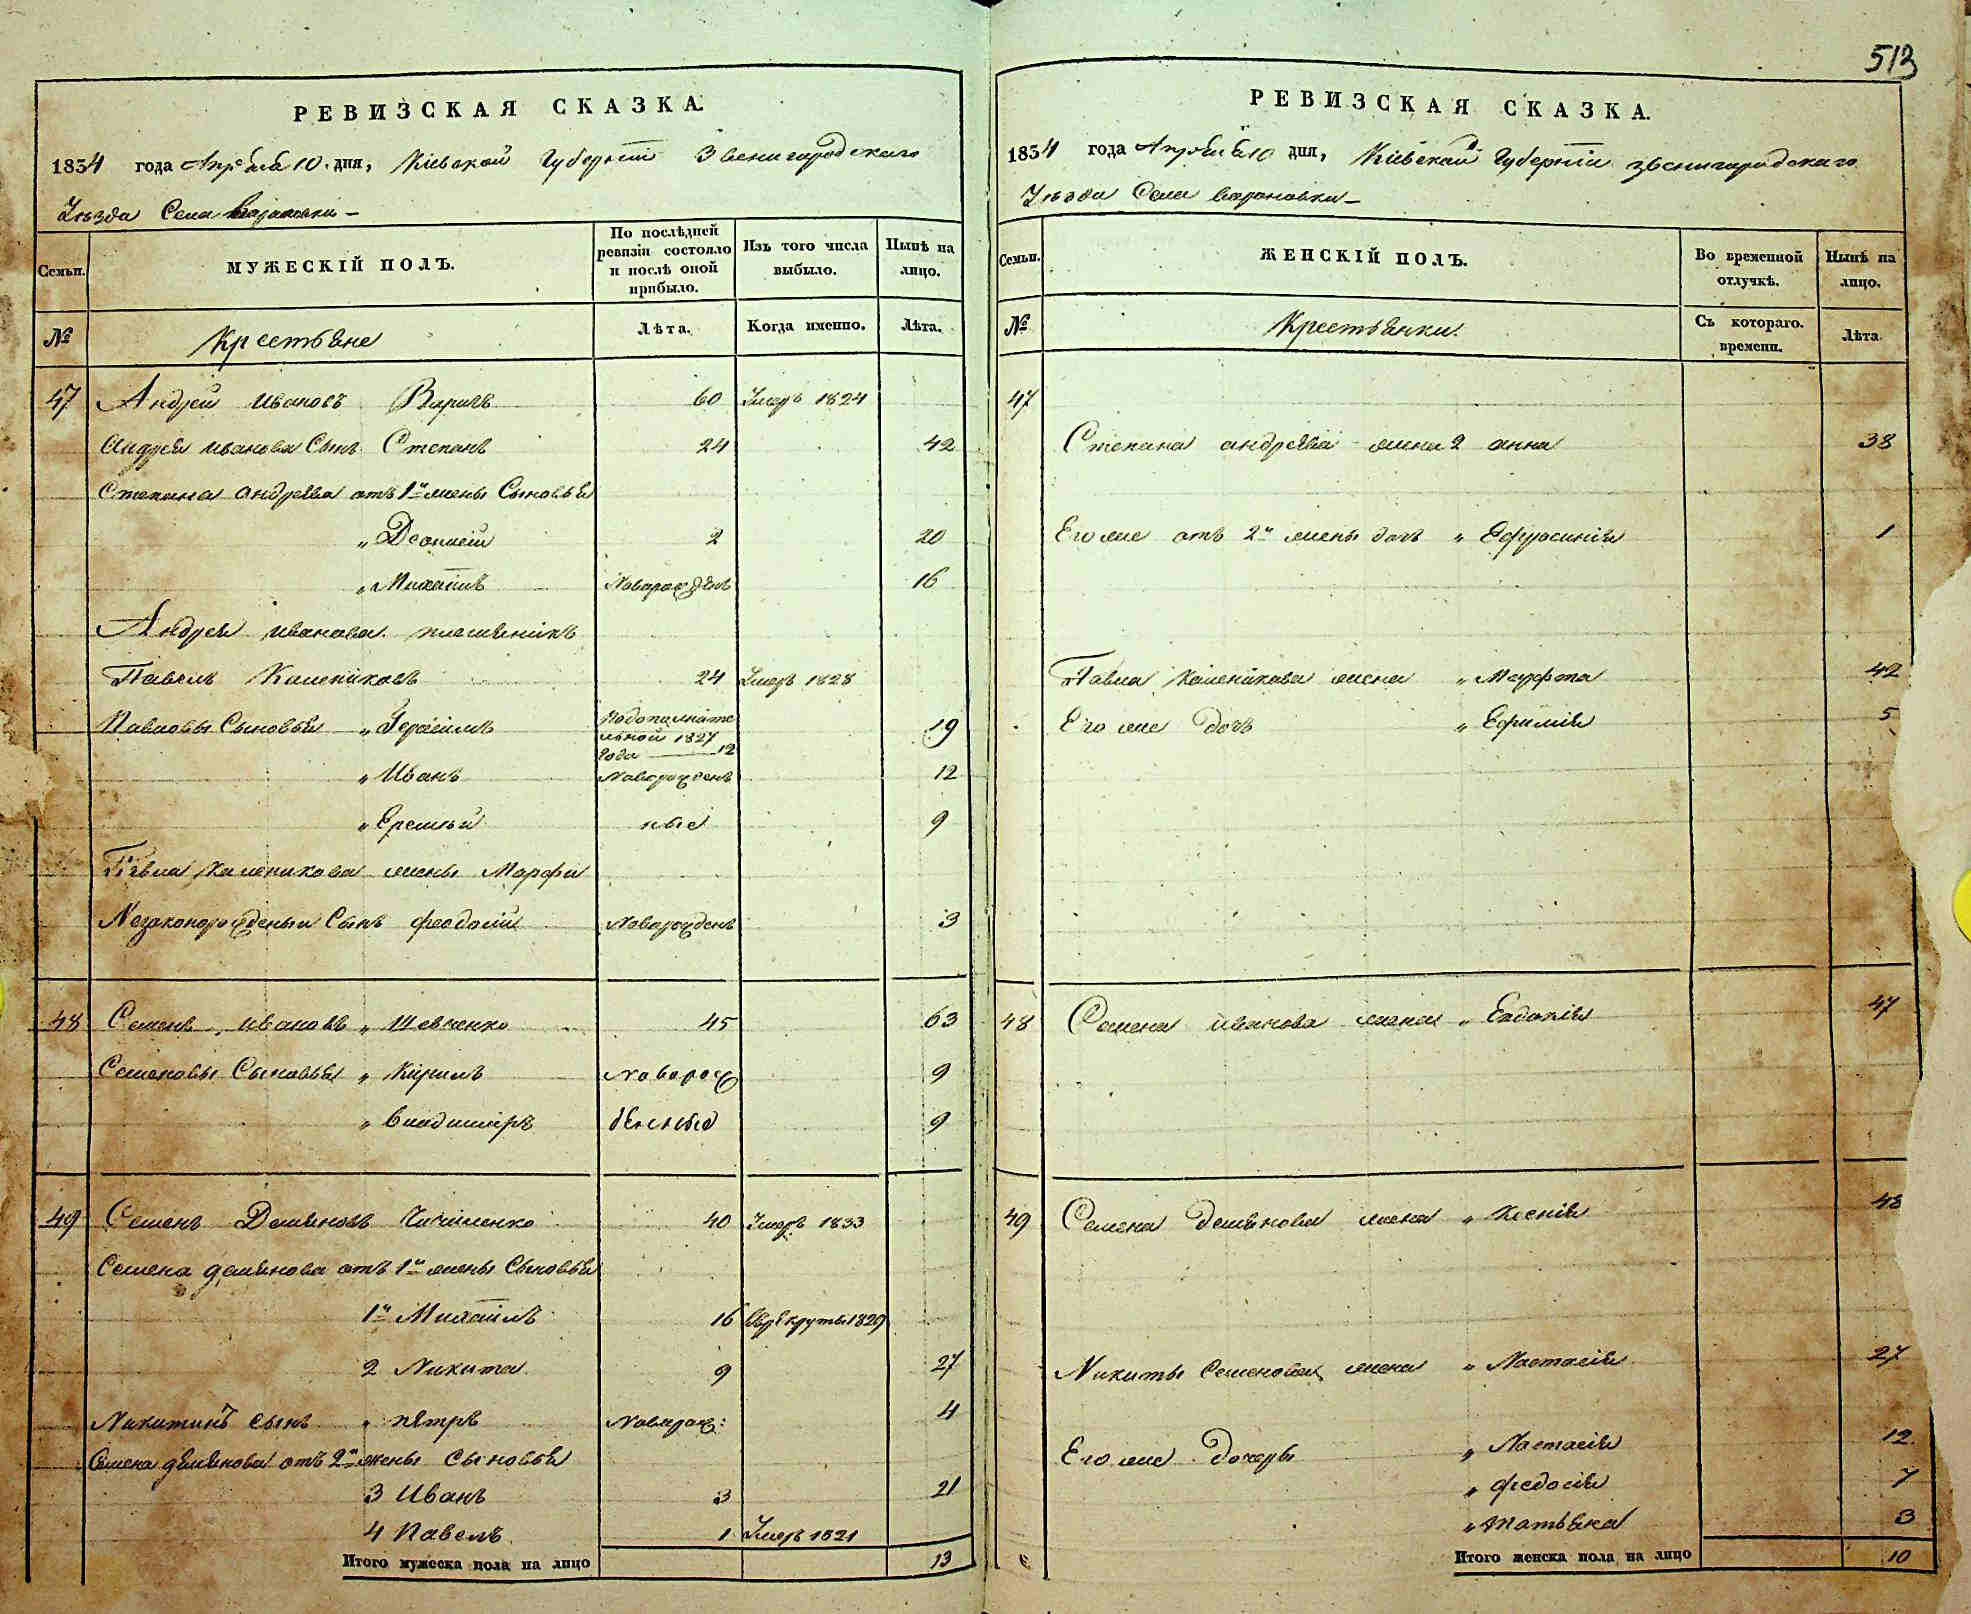 513
РЕВИЗСКАЯ СКАЗКА.
1834 года Апреля 10 дня, Кіевской Губерніи Звенигородскаго
Уѣзда Села
Семьи.
МУЖЕСКІЙ ПОЛЪ.
По послѣдней ревизіи состояло и послѣ оной прибыло.
Изъ того числа выбыло.
Нынѣ на лицо.
№
Крестьяне
Лѣта.
Когда именно.
Лѣта.
47 Андрей Ивановъ 60 Умеръ 1824
Андрея Иванова Сынъ Степанъ 24 42
Степана Андреева отъ 1й жены Сыновья
2 20
„ Михаилъ Наварожденъ 16
Андрея Иванова племянникъ
Павелъ Калениковъ 24 Умеръ 1828
Павловы Сыновья „ Герасимъ Подополнительной 1827 года 12 19
„ Иванъ Наворожденъ 12
„ Еремѣй ные 9
Павла Каленикова жены Марфы
Незаконорожденый Сынъ Феодосій Наворожденъ 3
48 Семенъ Ивановъ „ Шевченко 45 63
Семеновы Сыновья „ Кирилъ Новорож 9
„ Владимиръ денные 9
49 Семенъ Демяновъ 40 Умеръ 1833
Семена Демянова отъ 1й жены Сыновья
1й Михаилъ 16 Врекруты 1829
2 Никита 9 27
Никитинъ сынъ „ Петръ Наворож: 4
Семена Демянова отъ 2й жены Сыновья
3 Иванъ 3 21
4 Павелъ 1 Умеръ 1821
Итого мужеска пола на лицо 13
РЕВИЗСКАЯ СКАЗКА.
1834 года Апреля 10 дня, Кіевской Губерніи Звенигородскаго
Уѣзда Села
Семьи.
ЖЕНСКІЙ ПОЛЪ.
Во временной отлучкѣ.
Нынѣ на лицо.
№
Крестьянки.
Съ котораго. времени.
Лѣта.
47
Степана Андреева жена 2 Анна 38
Его же отъ 2й жены дочь „ Ефросинія 1
Павла Каленикова жена „ Марфа 42
Его же Дочь „ Ефимія 5
48 Семена Иванова жена „ Евдокія 47
49 Семена Демянова жена „ Ксенія 48
Никиты Семенова жена „ Настасія 27
Его же Дочери „ Настасія 12
„ Федосія 7
„ Татьяна 3
Итого женска пола на лицо 10